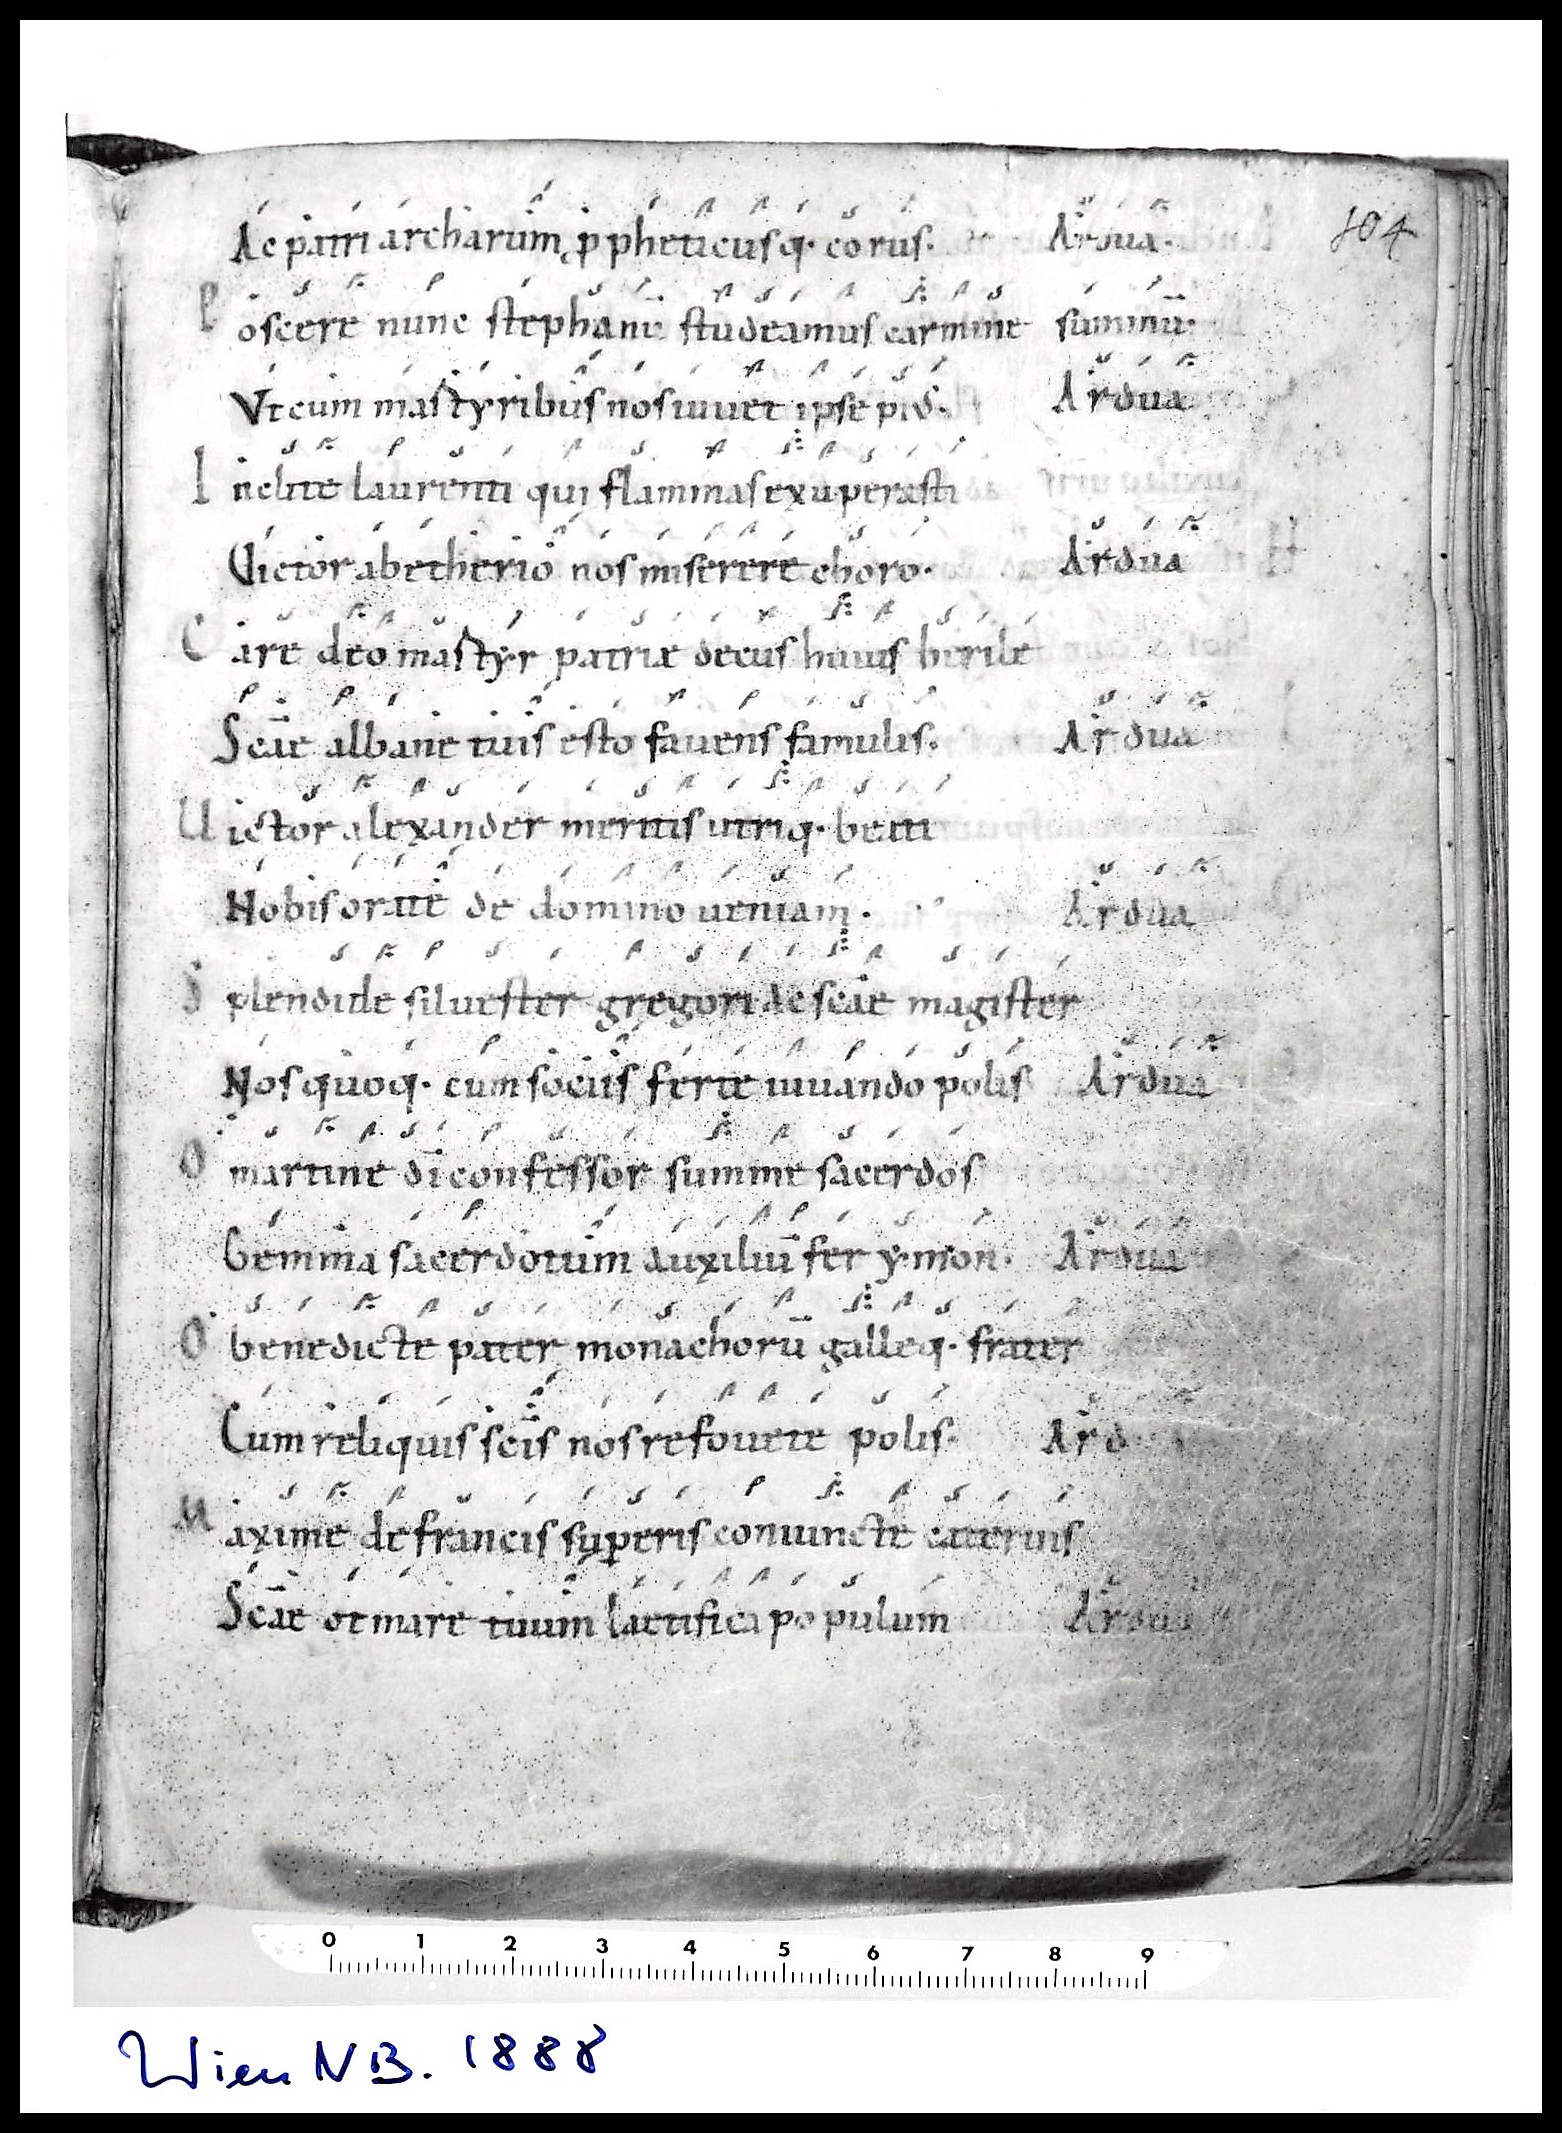 Ac patriarcharum, p̄pheticusq· corus· Ardua· 104
Poscere nunc stephanū studeamus carmine summū·
Vt cum martyribus nos iuuet ipse pıꝰ· Ardua
Inclite laurenti qui flammas exuperasti
Victor ab etherio nos miserere choro· Ardua
Care deo martyr patriæ decus huius herile
Scāe albane tuis esto fauens famulis· Ardua
Uictor alexander meritis utriq· beati
Nobis orate de domino ueniam· Ardua
Splendide siluester gregori ac scāe magister
Nos quoq· cum sociis ferte iuuando polis Ardua
O martine dī confessor summe sacerdos
Gemma sacerdotum auxiliū fer ymon· Ardua
O benedicte pater monachorū galleq· frater
Cum reliquis scīs nos refouete polis· Ard
Maxime de francis superis coniuncte cateruis
Scāe otmare tuum lætifica populum Ardua
0 1 2 3 4 5 6 7 8 9
Wien NB. 1888